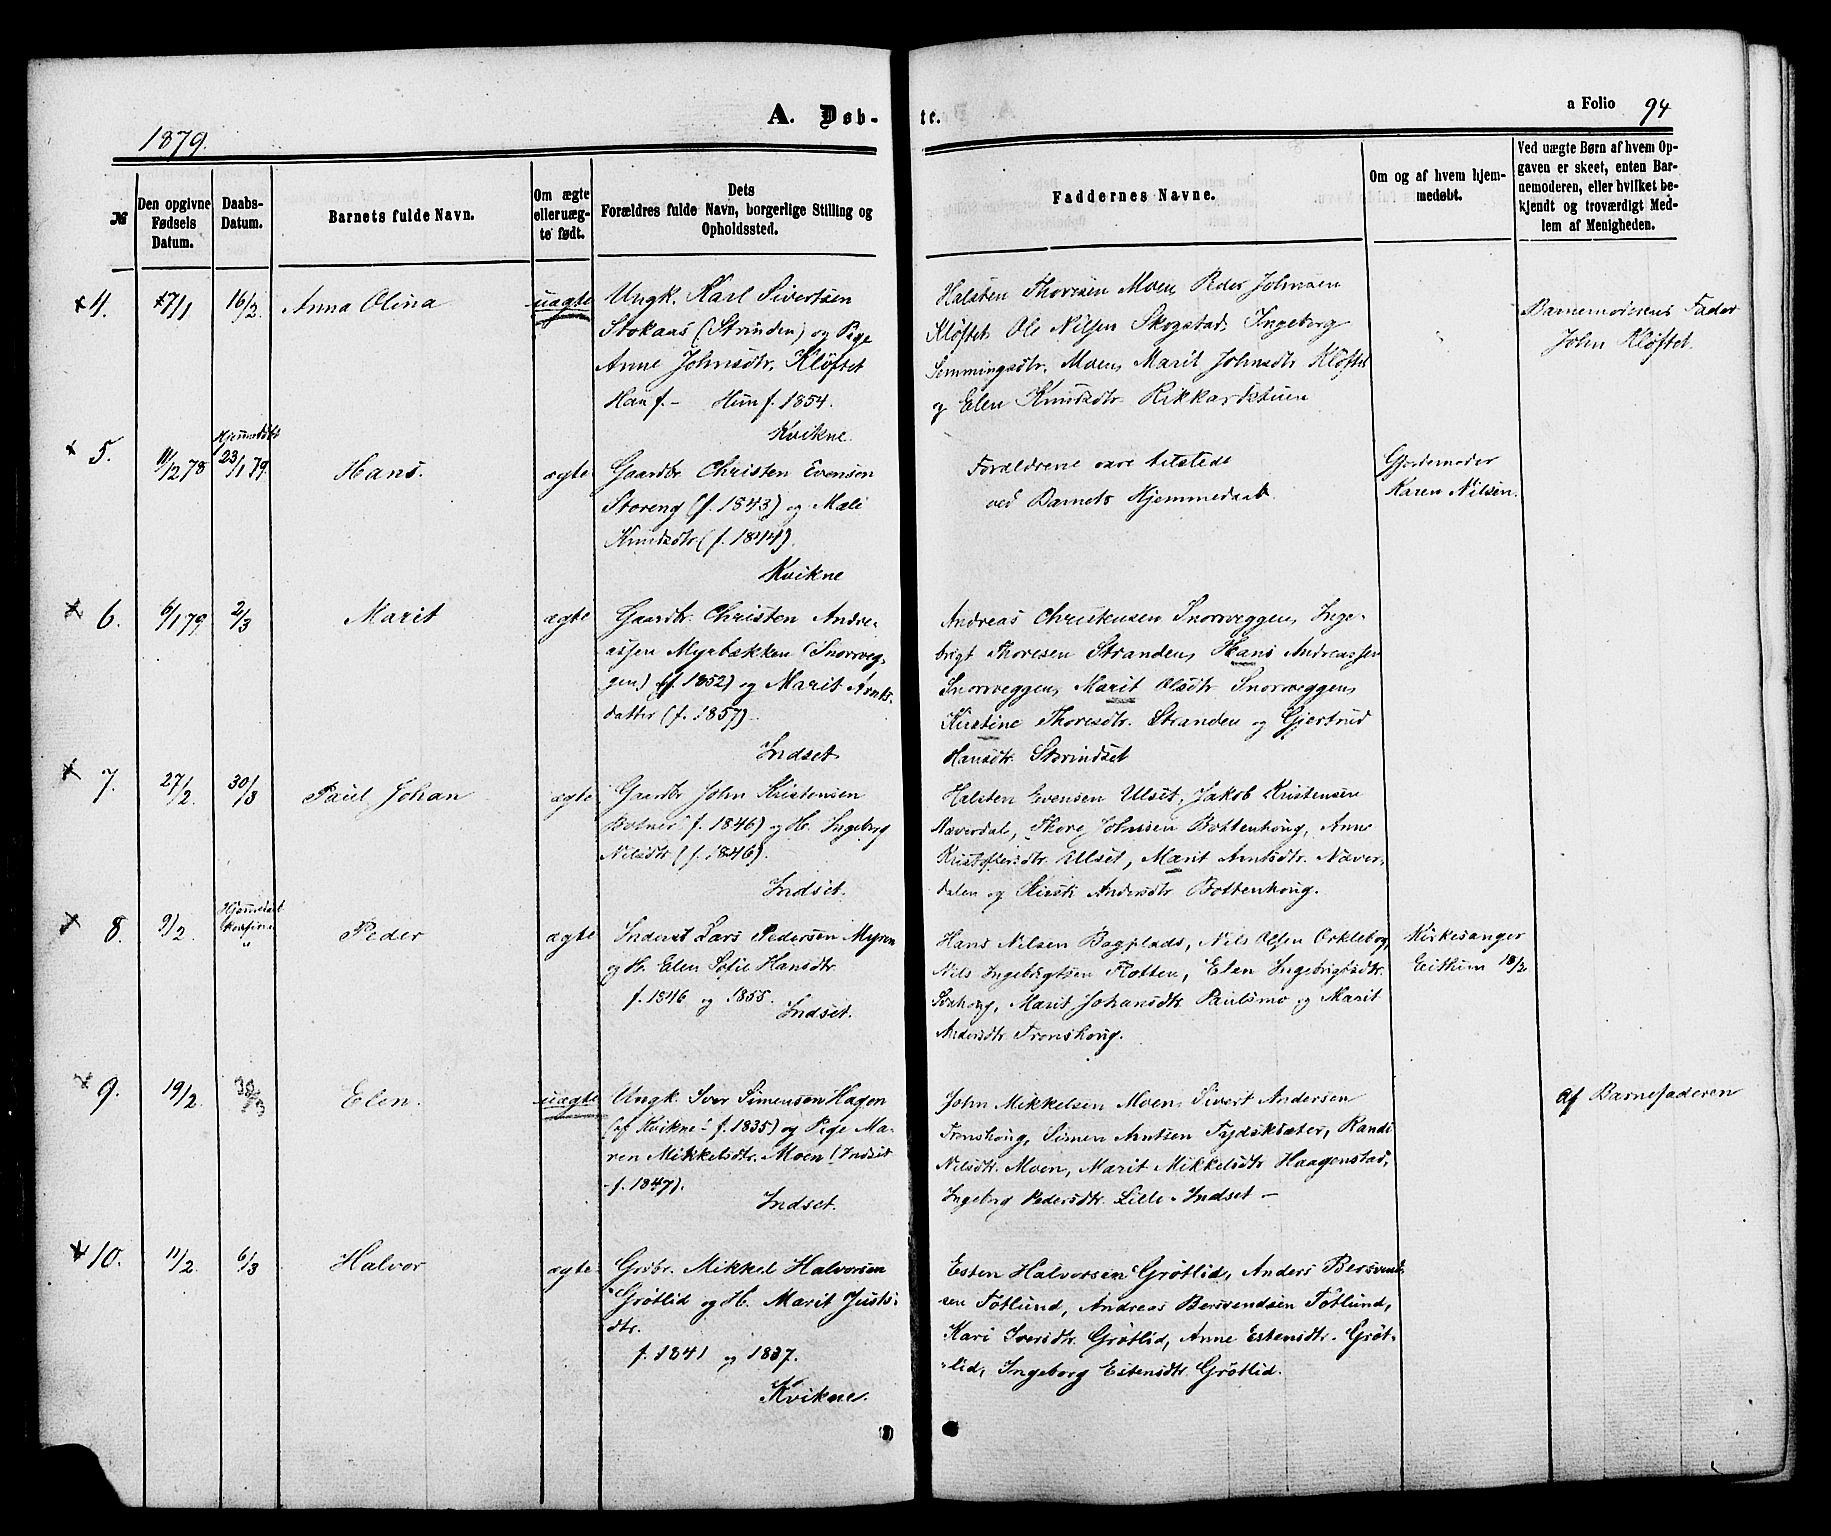 1879.
A. Døb-
te.
a Folio 94
№
Den opgivne Fødsels Datum.
Daabs-Datum.
Barnets fulde Navn.
Om ægte eller uæg-te født.
Dets
Forældres fulde Navn, borgerlige Stilling og
Opholdssted.
Faddernes Navne.
Om og af hvem hjem-
medøbt.
Ved uægte Børn af hvem Op-
gaven er skeet, enten Bar-
nemoderen, eller hvilket be-
kjendt og troværdigt Med-
lem af Menigheden.
4. 17/1 16/2. Anna Olina uægte
Ungk. Karl Sivertsen
Stokaas (Strinden) og Pige
Anne Johnsdtr. Kløftet
Han f. - Hun f. 1854.
Kvikne.
Halsten Thoresen Moen, Peder Johnsen
Kløftet, Ole Nilsen Skogstad, Ingeborg
Semmingsdtr. Moen, Marit Johnsdtr Kløftet
og Elen Knudsdtr. Rikkardstuen
Barnemoderens Fader
John Kløftet.
5. 11/12 78 Hjemmedøbt 23/1 79. Hans. ægte
Gaardbr. Christen Evensen
Storeng (f. 1843) og Mali
Knudsdtr (f. 1844).
Kvikne
Forældrene vare tilstede
ved Barnets Hjemmedaab.
Gjordemoder
Karen Nilsen.
6. 6/1 79 2/3 Marit ægte
Gaardbr. Christen Andre-
assen Myrbækken (Snorveg-
gen) (f. 1852) og Marit Arnts-
datter (f. 1857).
Indset.
Andreas Christensen Snorveggen, Inge-
brigt Thoresen Stranden, Hans Andreassen
Snorveggen, Marit Olsdtr Snorveggen,
Kirstine Thoresdtr. Stranden og Gjertrud
Hansdtr. Storindset
7. 27/2. 30/3 Paul Johan ægte
Gaardbr John Kristensen
Botnes f. 1846) og H. Ingeborg
Nilsdtr (f. 1846).
Indset.
Halsten Evensen Ulset, Jakob Kristensen
Næverdal, Thore Johnsen Bottenhoug, Anne
Kristoffersdtr. Ulset, Marit Arntsdtr. Næver-
dalen og Kirsti Andersdtr Bottenhoug.
8. 9/2. Hjemmedøbt Peder ægte
Inderst Lars Pedersen Myren
og H. Elen Sofie Hansdtr.
f. 1846 og 1855.
Indset.
Hans Nilsen Bagplads, Nils Olsen Orklebog,
Nils Ingebrigtsen Flotten, Elen Ingebrigtsdtr.
Marit Johansdtr. Paulsmo og Marit
Andersdtr Fronshoug.
Kirkesanger
Eithum 18/2
9. 19/2. 30/3 Elen. uægte
Ungk. Iver Simensen Hagen
(af Kvikne - f. 1835) og Pige Ma-
ren Mikkelsdtr. Moen (Indset
f. 1847).
Indset.
John Mikkelsen Moen, Sivert Andersen
Fronshoug, Simen Arntsen Frydsksæter, Randi
Nilsdtr. Moen, Marit Mikkelsdtr Haagenstad,
Ingeborg Pedersdtr. Lille-Indset -
Af Barnefaderen
10. 11/2. 6/3 Halvor ægte.
Grdbr. Mikkel Halvorsen
Grøtlid og H. Marit Justs-
dtr.
f. 1841 og 1837.
Kvikne.
Esten Halvorsen Grøtlid, Anders Bersvend-
sen Tøtlund, Andreas Bersvendsen Tøtlund,
Kari Iversdtr. Grøtlid, Anne Estensdtr. Grøt-
lid, Ingeborg Estensdtr Grøtlid.